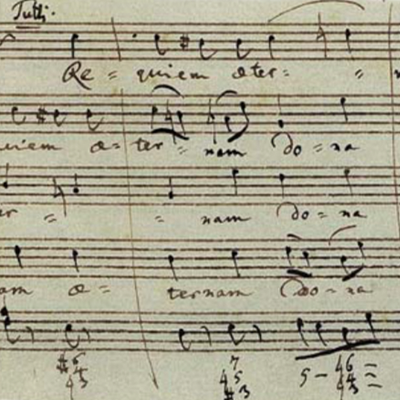 Tutti.
Re = quiem æter = =
quiem æ = ter = nam do = na
= = nam do = na
am æ = ternam do = na
#6
4
7
4 5
#3
5 - 4 6